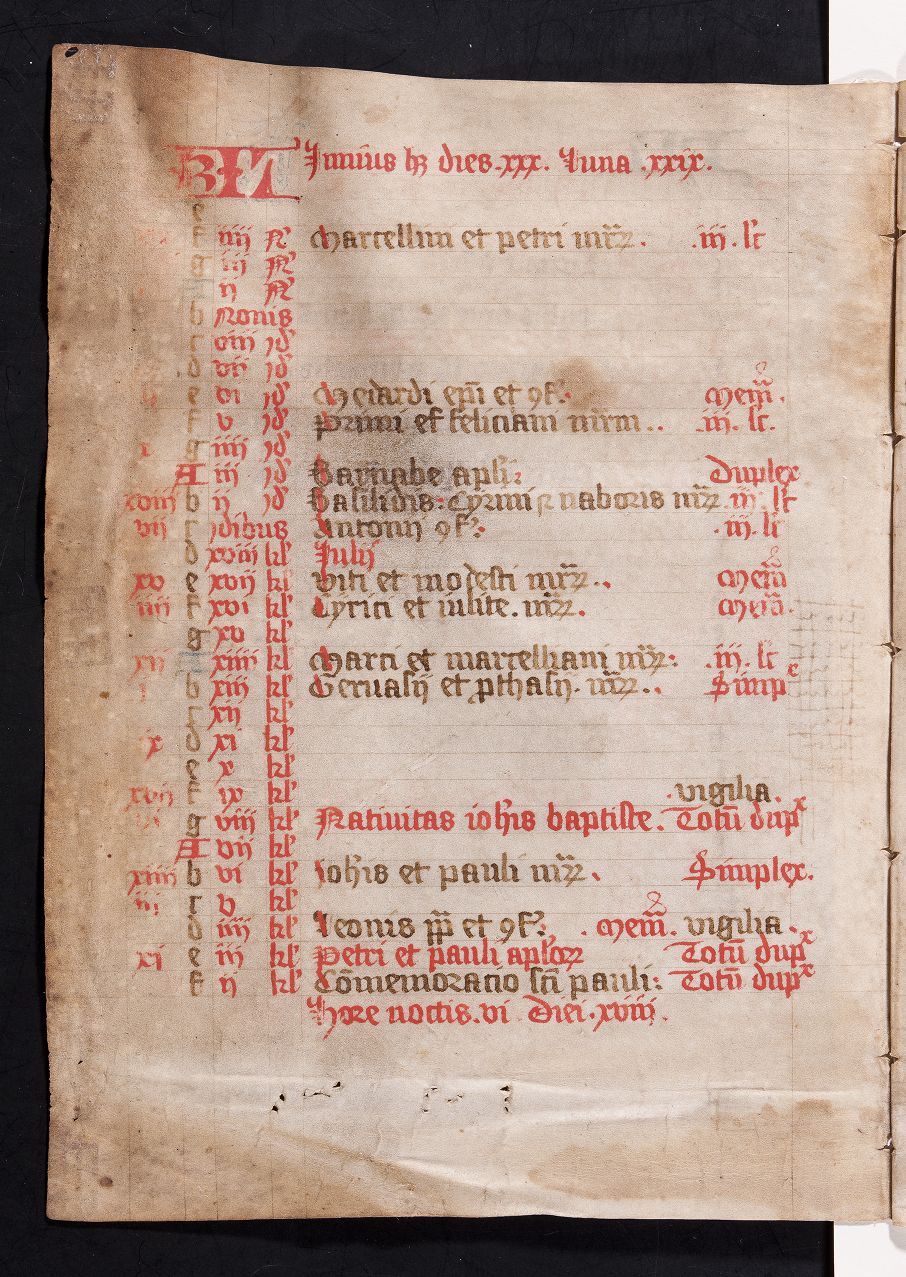 KL Junius hꝫ dies .xxx. luna .xxix.
e
f iiij N' Marcellini et petri mr̄ꝝ. .iij. lc̄
g iij N'
ij N'
b Nonis
c viij jd'
d vij jd'
e vi jd' Medardi ep̄i et ꝯf'. Mem̄.
f v jd' Primi et feliciani mr̄m.. .iij. lc̄.
g iiij jd'
A iij jd' Barnabe apl'i: Duplex
xviij b ij jd' Basilidis: Cyrini ⁊ naboris mr̄ꝝ .iij. lc̄
vij c jdibus Antonij ꝯf'. .iij. lc̄
d xviij kl' Julij
xv e xvij kl' Viti et modesti mr̄ꝝ.. Mem̄
iiij f xvi kl' Cyrici et iulite. mr̄ꝝ. Mem̄.
g xv kl'
xij xiiij kl' Marci et marcelliani mr̄ꝝ: .iij. lc̄
i b xiij kl' Geruasij et ꝓthasij. mr̄ꝝ.. Simpᵉ
c xij kl'
ix d xi kl'
e x kl'
xvij f ix kl' .vigilia.
g viij kl' Natiuitas ioh̄is baptiste. Totū dupˣ
A vij kl'
xiiij b vi kl' Ioh̄is et pauli mr̄ꝝ. Simplex.
iij c v kl'
d iiij kl' Leonis pp̄ et ꝯf'. .Mem̄. vigilia.
xi e iij kl' Petri et pauli apl'oꝝ Totū dupˣ
f ij kl' Cōmemoracio sc̄i pauli: Totū dupˣ
Hore noctis .vi Diei .xviij.